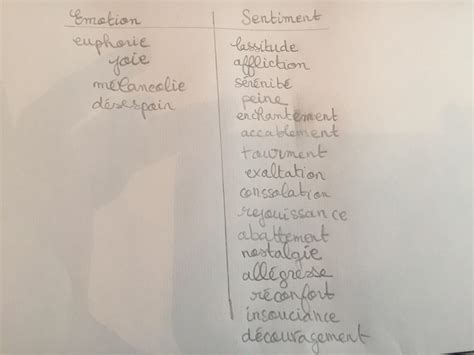 Emotion Sentiment
euphorie lassitude
joie affliction
mélancolie sérénité
désespoir peine
enchantement
accablement
tourment
exaltation
conssolation
rejouissance
abattement
nostalgie
allégresse
réconfort
insouciance
découragement